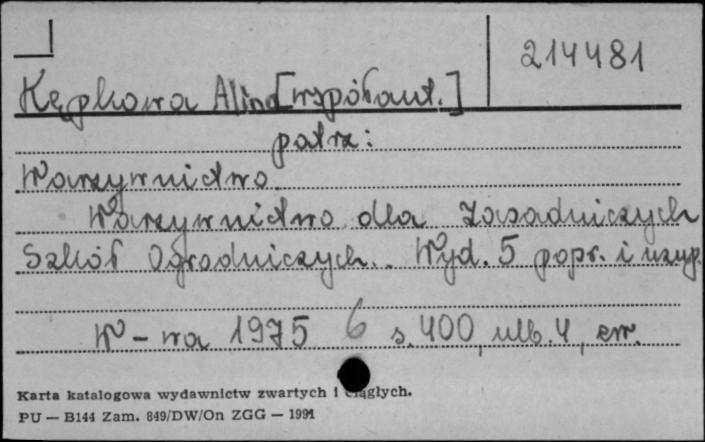 214481
Kępkowa Alina [współaut.]
patrz:
Warzywnictwo.
Warzywnictwo dla Zasadniczych
Szkół Ogrodniczych. Wyd. 5 popr. i uzup.
W-wa 1975 6 s. 400, nlb. 4, err.
Karta katalogowa wydawnictw zwartych i ciągłych.
PU — B144 Zam. 849/DW/On ZGG — 1991